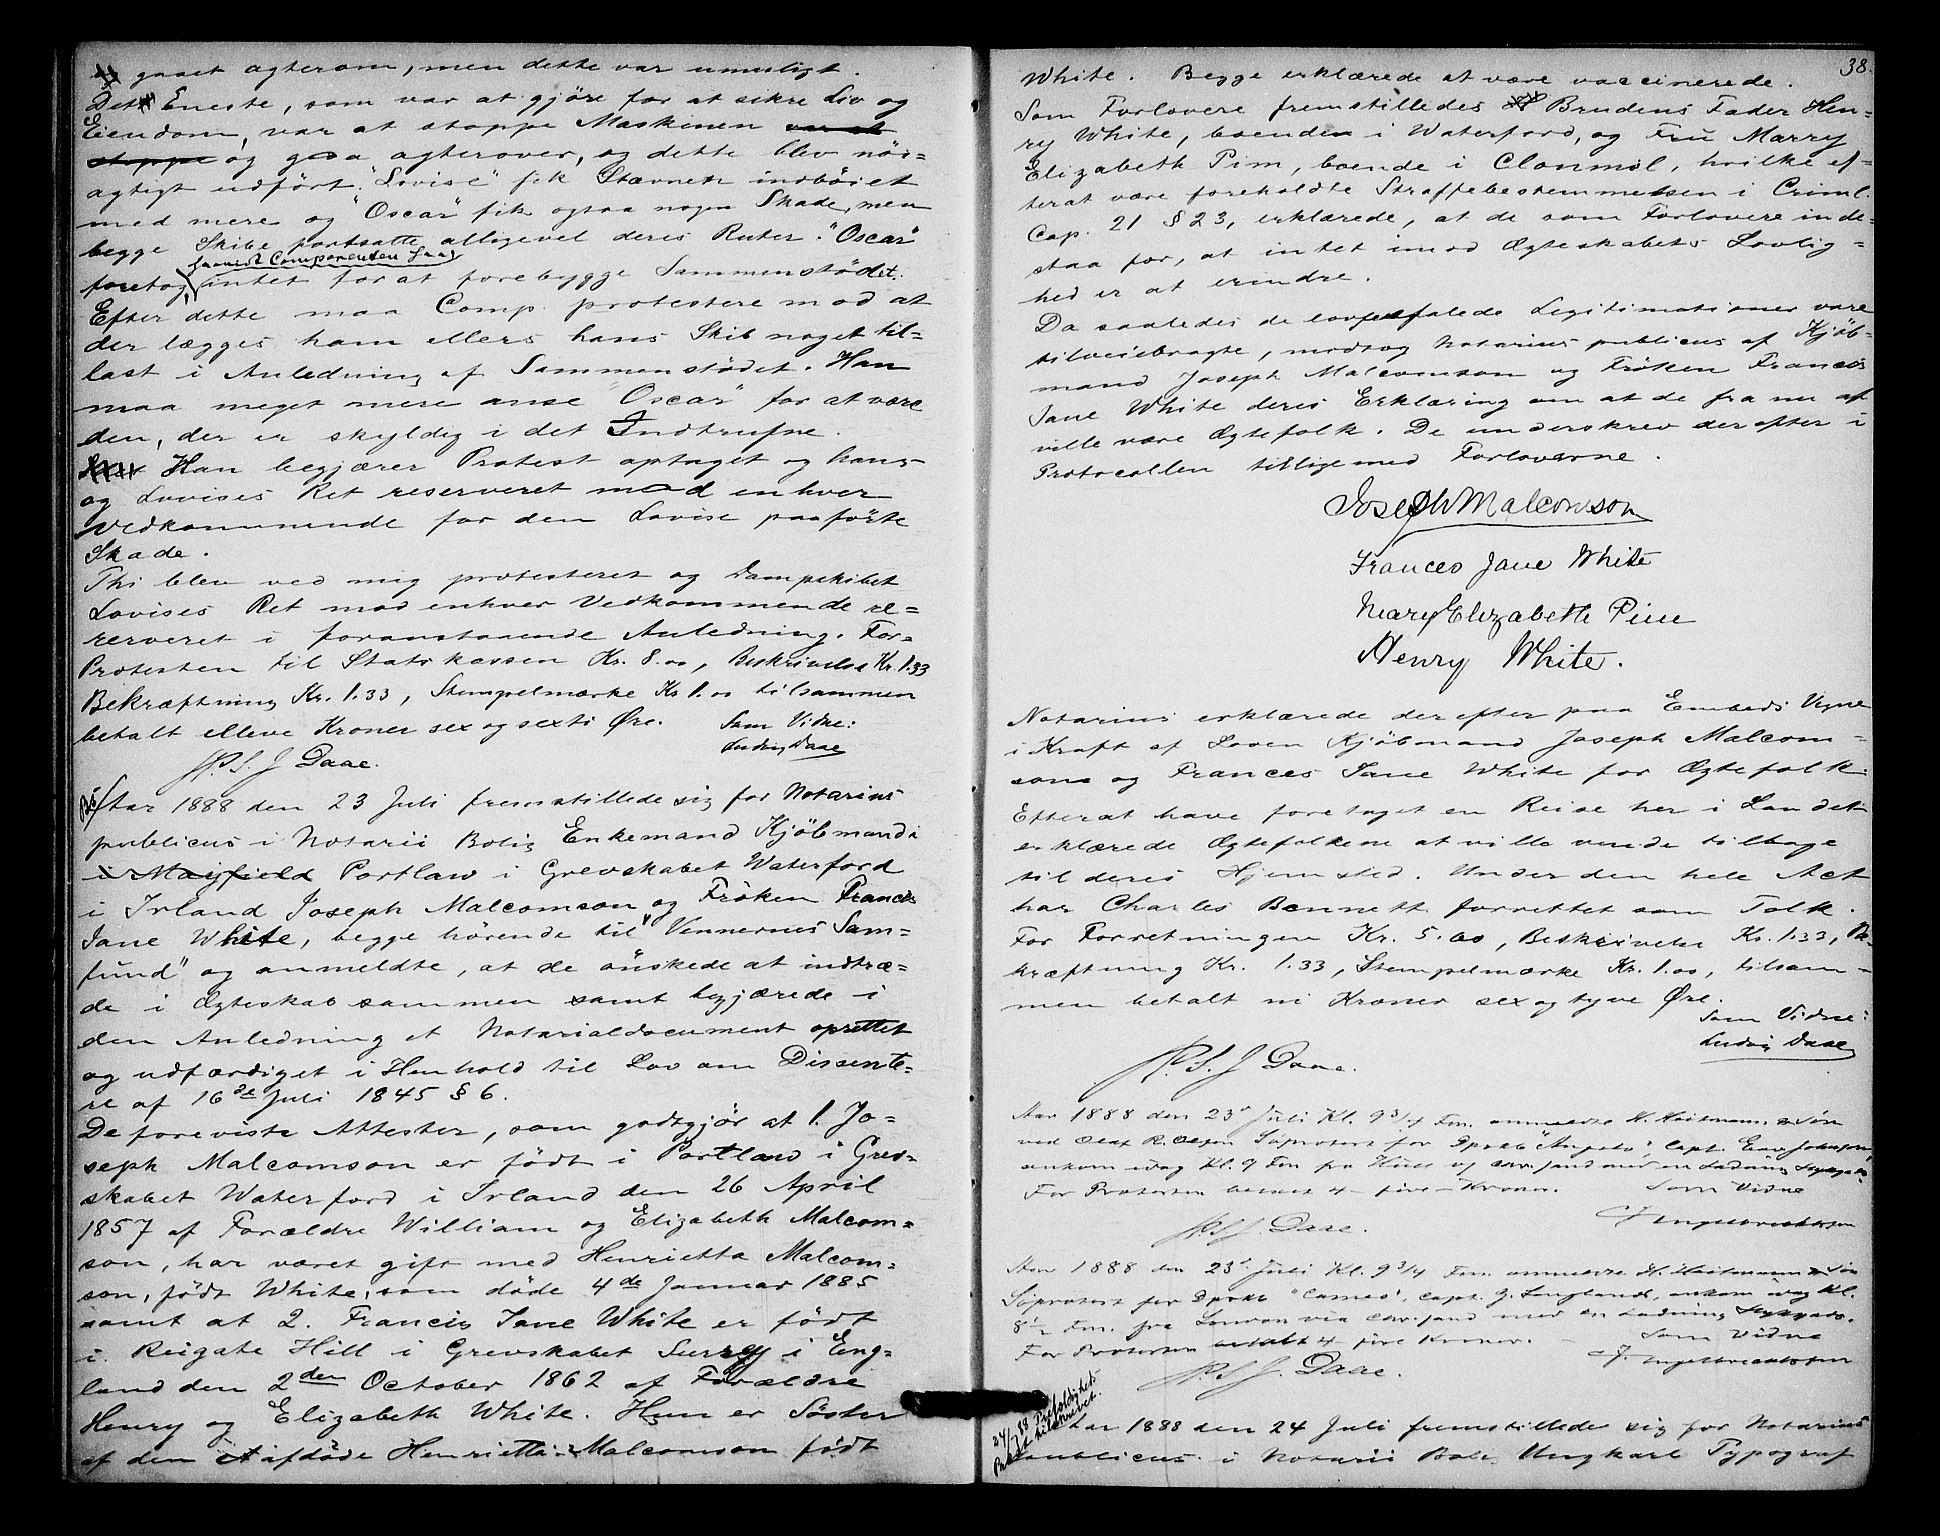 gaaet agterom, men dette var umuligt.
Det Eneste, som var at gjøre for at sikre Liv og
Eiendom, var at stoppe Maskinen var at
stoppe og gaa agterover, og dette blev nöi=
agtigt udfört. "Lovise" fik Stævnen indböiet
med mere og "Oscar" fik ogsaa nogen Skade, men
begge Skibe fortsatte alligevel deres Ruter. "Oscar"
saavidt Comparenten saa,
foretog intet for at forebygge Sammenstödet.
Efter dette maa Comp. protestere mod at
der lægges ham ellers hans Skib noget til=
last i Anledning af Sammenstödet. Han
maa meget mere anse "Oscar" for at være
den, der er skyldig i det Indtrufne.
Han begjærer Protest optaget og hans
og Lovises Ret reserveret mod enhver
Vedkommende for den Lovise paaförte
Skade.
Thi blev ved mig protesteret og Dampskibet
Lovises Ret mod enhver Vedkommende re=
serveret i foranstaaende Anledning. For
Protesten til Statskassen Kr. 8.00, Beskrivelse Kr. 1.33
Bekræftning Kr. 1.33, Stempelmærke Kr 1.00 tilsammen
betalt elleve Kroner sex og sexti Øre. Som Vidne:
Ludvig Daae
P.S.J Daae.
Aar 1888 den 23 Juli fremstillede sig for Notarius
publicus i Notarii Bolig Enkemand Kjöbmand i
i Mayfield Portlaw i Grevskabet Waterford
i Irland Joseph Malcomson og Fröken Frances
Jane White, begge hörende til "Vennernes Sam=
fund" og anmeldte, at de önskede at indtræ=
de i Ægteskab sammen samt begjærede i
den Anledning et Notarialdocument oprettet
og udfærdiget i Henhold til Lov om Dissente=
re af 16de Juli 1845 § 6.
De foreviste Attester, som godtgjör at 1. Jo=
seph Malcomson er födt i Portlaw i Grev=
skabet Waterford i Irland den 26 April
1857 af Forældre William og Elizabeth Malcom=
son, har været gift med Henrietta Malcom=
son, födt White, som döde 4de Januar 1885
samt at 2. Francis Jane White er födt
i Reigate Hill i Grevskabet Surrey i Eng=
land den 2den October 1862 af Forældre
Henry og Elizabeth White. Hun er Söster
af den afdöde Henrietta Malcomson födt
38.
White. Begge erklærede at være vaccinerede.
Som Forlovere fremstilledes Brudens Fader Hen=
ry White, boende i Waterford, og Fru Marry
Elizabeth Pim, boende i Clonmel, hvilke ef=
terat være foreholdte Straffebestemmelsen i Criml.
Cap. 21 § 23, erklærede, at de som Forlovere inde=
staa for, at intet imod Ægteskabets Lovlig=
hed er at erindre.
Da saaledes de lovbefalede Legitimationer vare
tilveiebragte, modtog Notarius publicus af Kjöb=
mand Joseph Malcomson og Fröken Frances
Jane White deres Erklæring om at de fra nu af
ville være Ægtefolk. De underskrev derefter i
Protocollen tilligemed Forloverne.
Joseph Malcomson
Frances Jane White
Mary Elizabeth Pim
Henry White.
Notarius erklærede derefter paa Embeds Vegne
i Kraft af Loven Kjöbmand Joseph Malcom=
son og Frances Jane White for Ægtefolk.
Efterat have foretaget en Reise her i Landet
erklærede Ægtefolkene at ville vende tilbage
til deres Hjemsted. Under den hele Act
har Charles Bennett forrettet som Tolk.
For Forretningen Kr. 5.00, Beskrivelse Kr. 1.33, Be=
kræftning Kr. 1.33, Stempelmærke Kr. 1.00, tilsam=
men betalt ni Kroner sex og tyve Øre.
Som Vidne:
Ludvig Daae
P.S.J Daae.
Aar 1888 den 23' Juli Kl. 9 3/4 Fm. anmeldte H. Heitmann & Sön
ved Olaf R. Olsen Söprotest for Dpskb "Angelo", Capt.
ankom idag Kl. 9 Fm fra Hull og Chr.sand med en Ladning Stykgods.
For Protesten betalt 4 - fire - Kroner. Som Vidne
P.S.J. Daae. J Ingebrechtsen
Aar 1888 den 23' Juli Kl. 9 3/4 Fm. anmeldte H. Heitmann & Sön
Söprotest for Dpskb "Cameo", Capt. J. , ankom idag Kl.
8 1/2 Fm. fra London via Chr.sand med en Ladning Stykgods.
For Protesten betalt 4 fire Kroner. Som Vidne
P.S.J. Daae. J. Ingebrechtsen
24/7 88
Aar 1888 den 24 Juli fremstillede sig for Notarius
publicus i Notarii Bolig Ungkarl Typograf